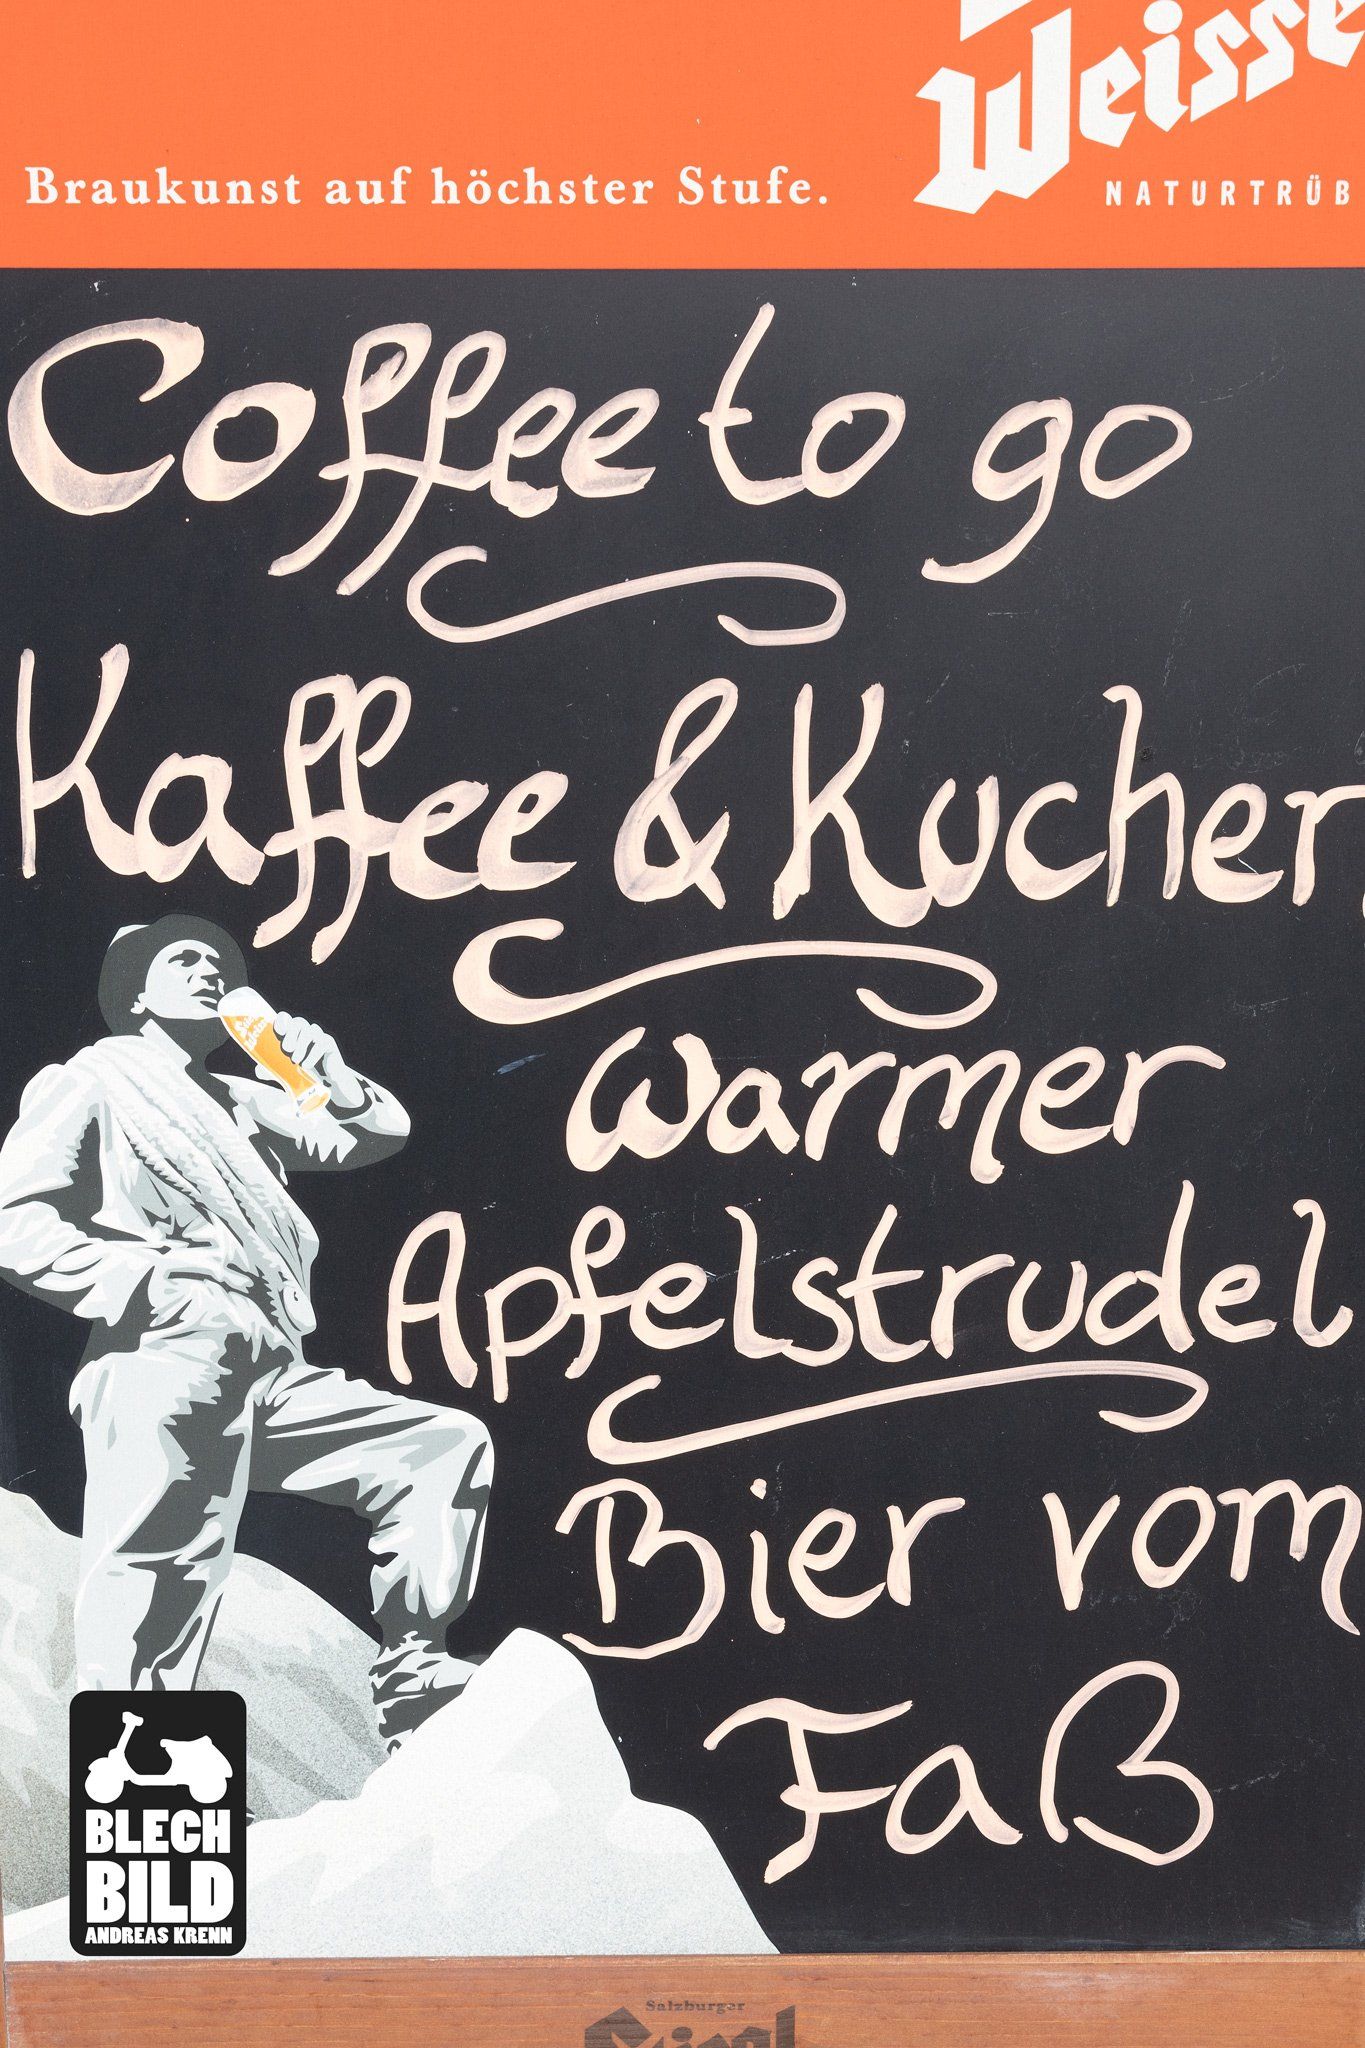 Weisse
Braukunst auf höchster Stufe.
NATURTRÜB
Coffee to go
Kaffee & Kuchen
warmer
Apfelstrudel
Bier vom
Faß
BLECH
BILD
ANDREAS KRENN
Salzburger
Stiegl